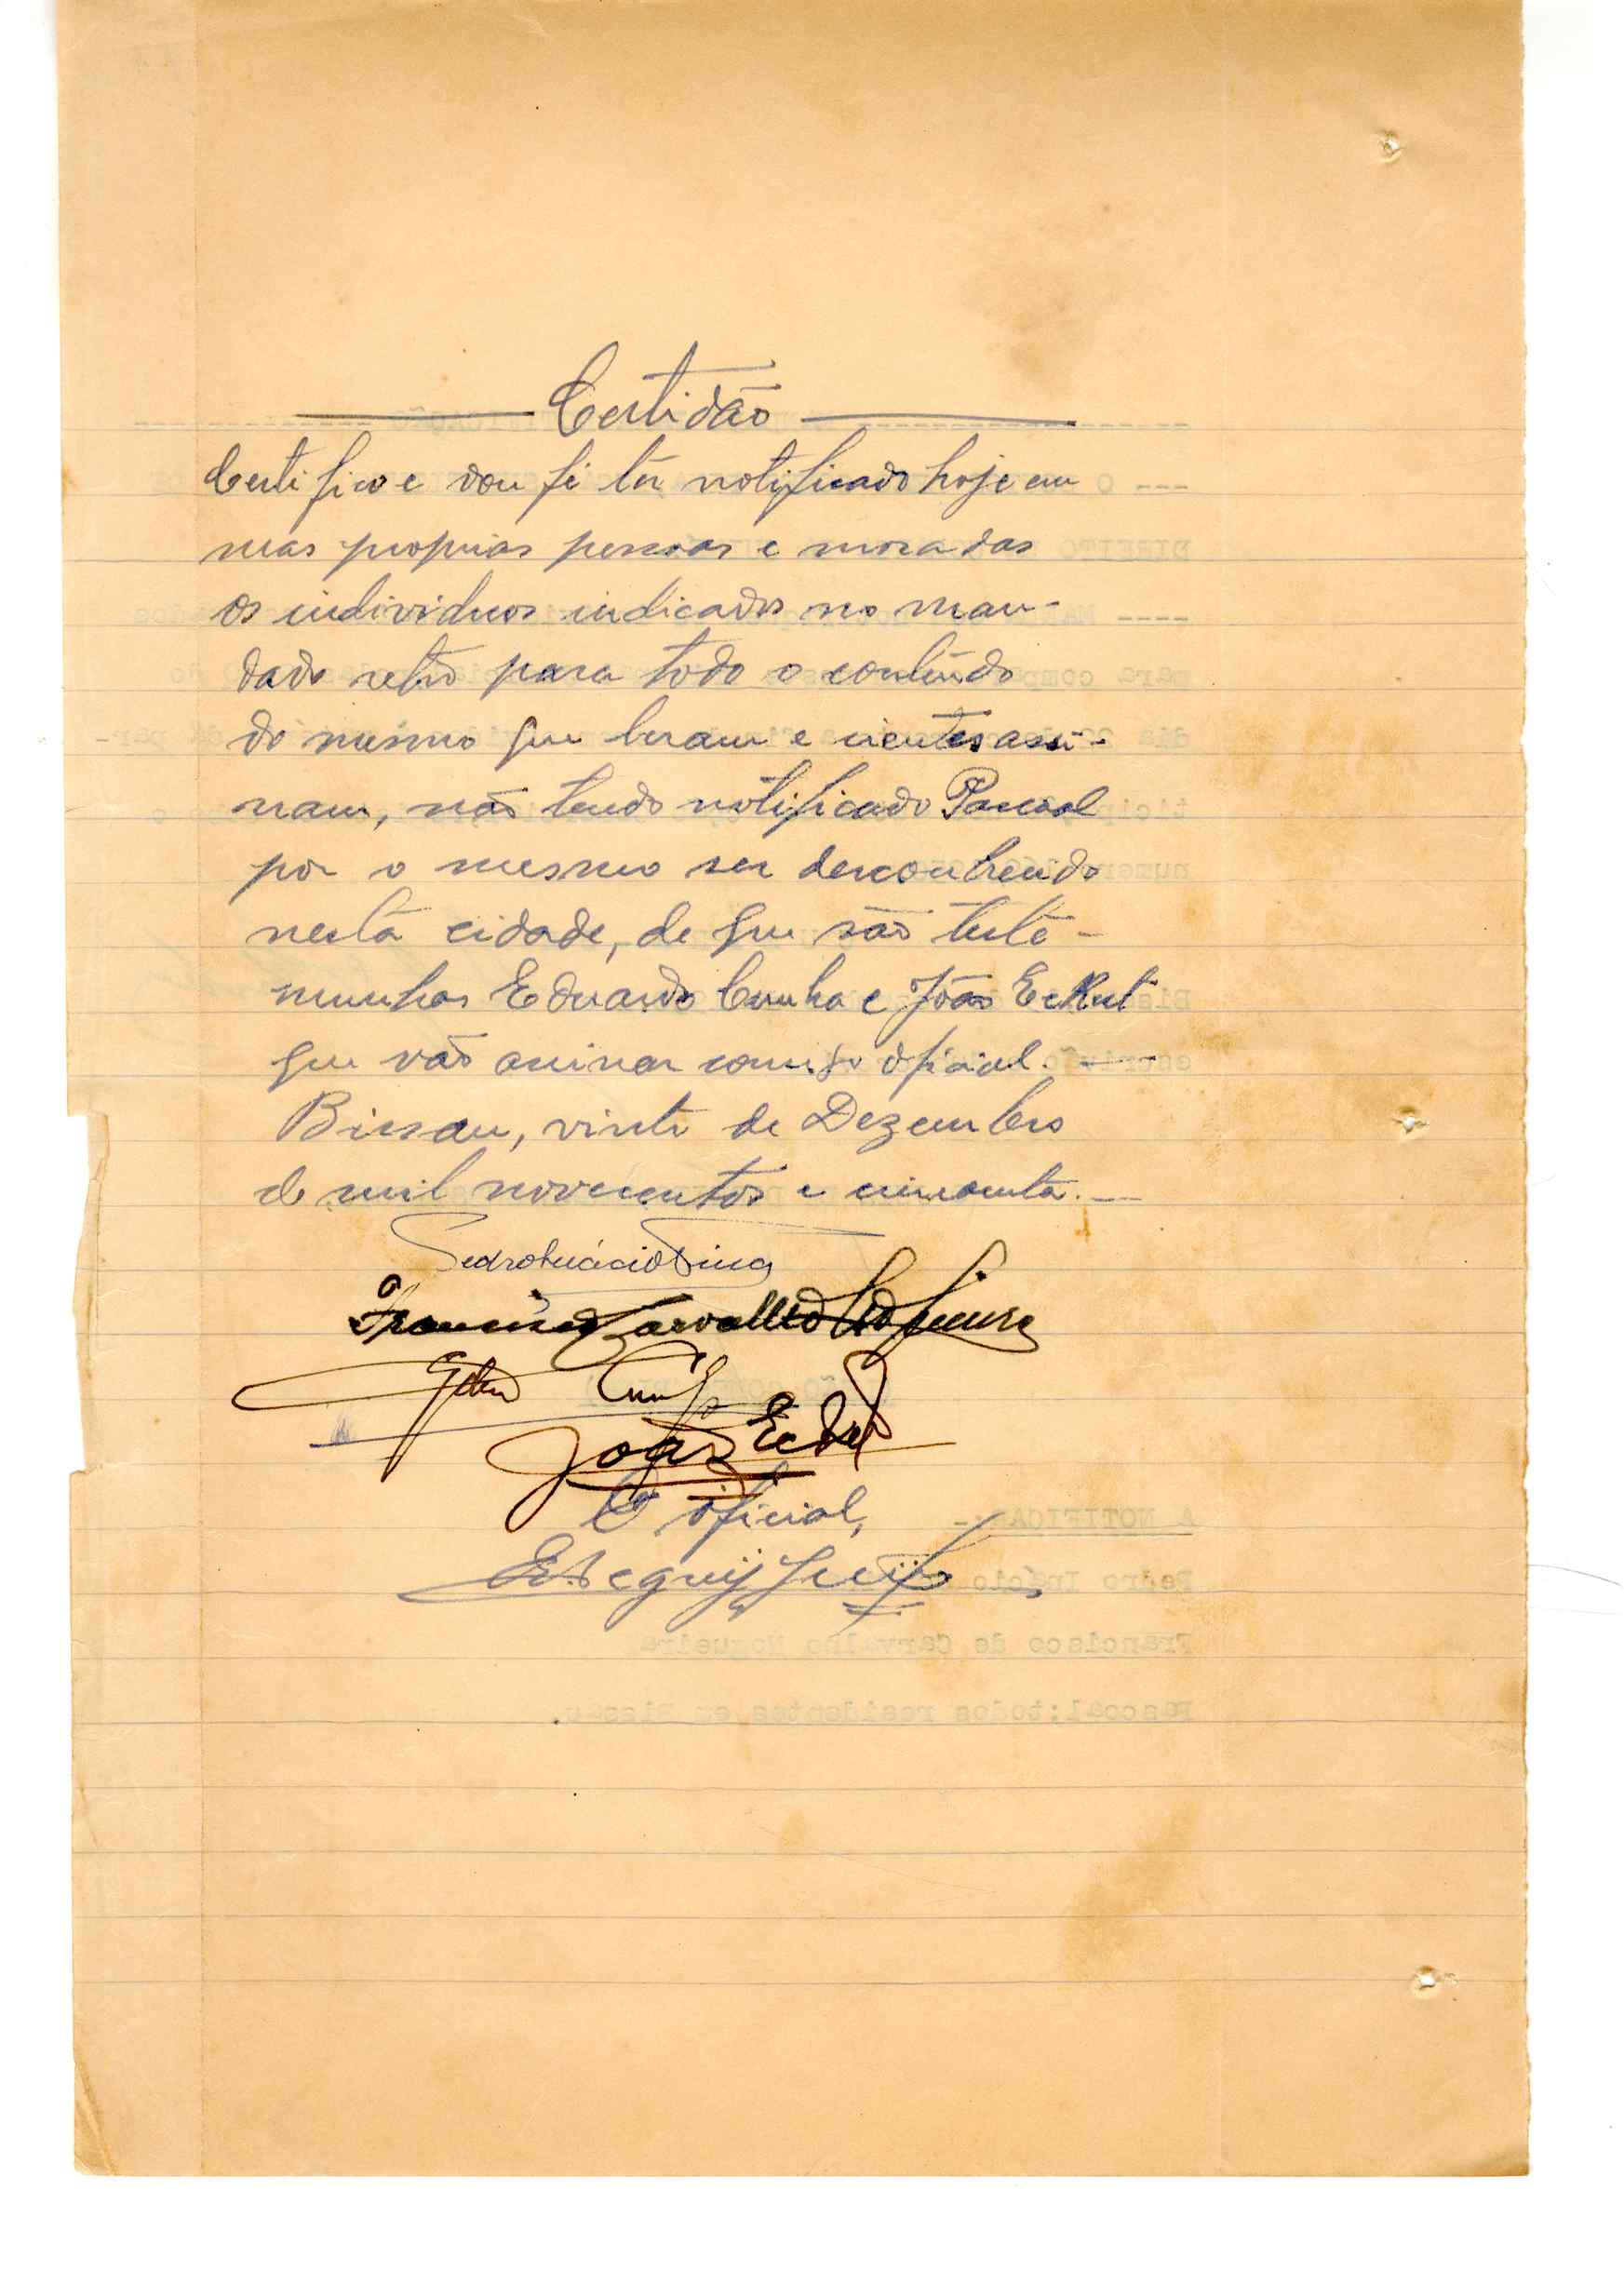 Certidão
Certifico e dou fé ter notificado hoje em
suas proprias pessoas e moradas
os individuos indicados no man-
dado retro para todo o conteúdo
do mesmo que leram e cientes assi-
nam, não tendo notificado Pascoal
por o mesmo ser desconhecido
nesta cidade, de que são teste-
munhas Eduardo Cunha e João Eckert
que vão assinar comigo oficial.
Bissau, vinte de Dezembro
de mil novecentos e cincoenta.
Pedro Inácio
Francisco Carvalho Nogueira
Cunha
João
O oficial,
A NOTIFICAR:-
Pedro Inácio
Francisco de Carvalho Nogueira
Pascoal; todos residentes em Bissau.